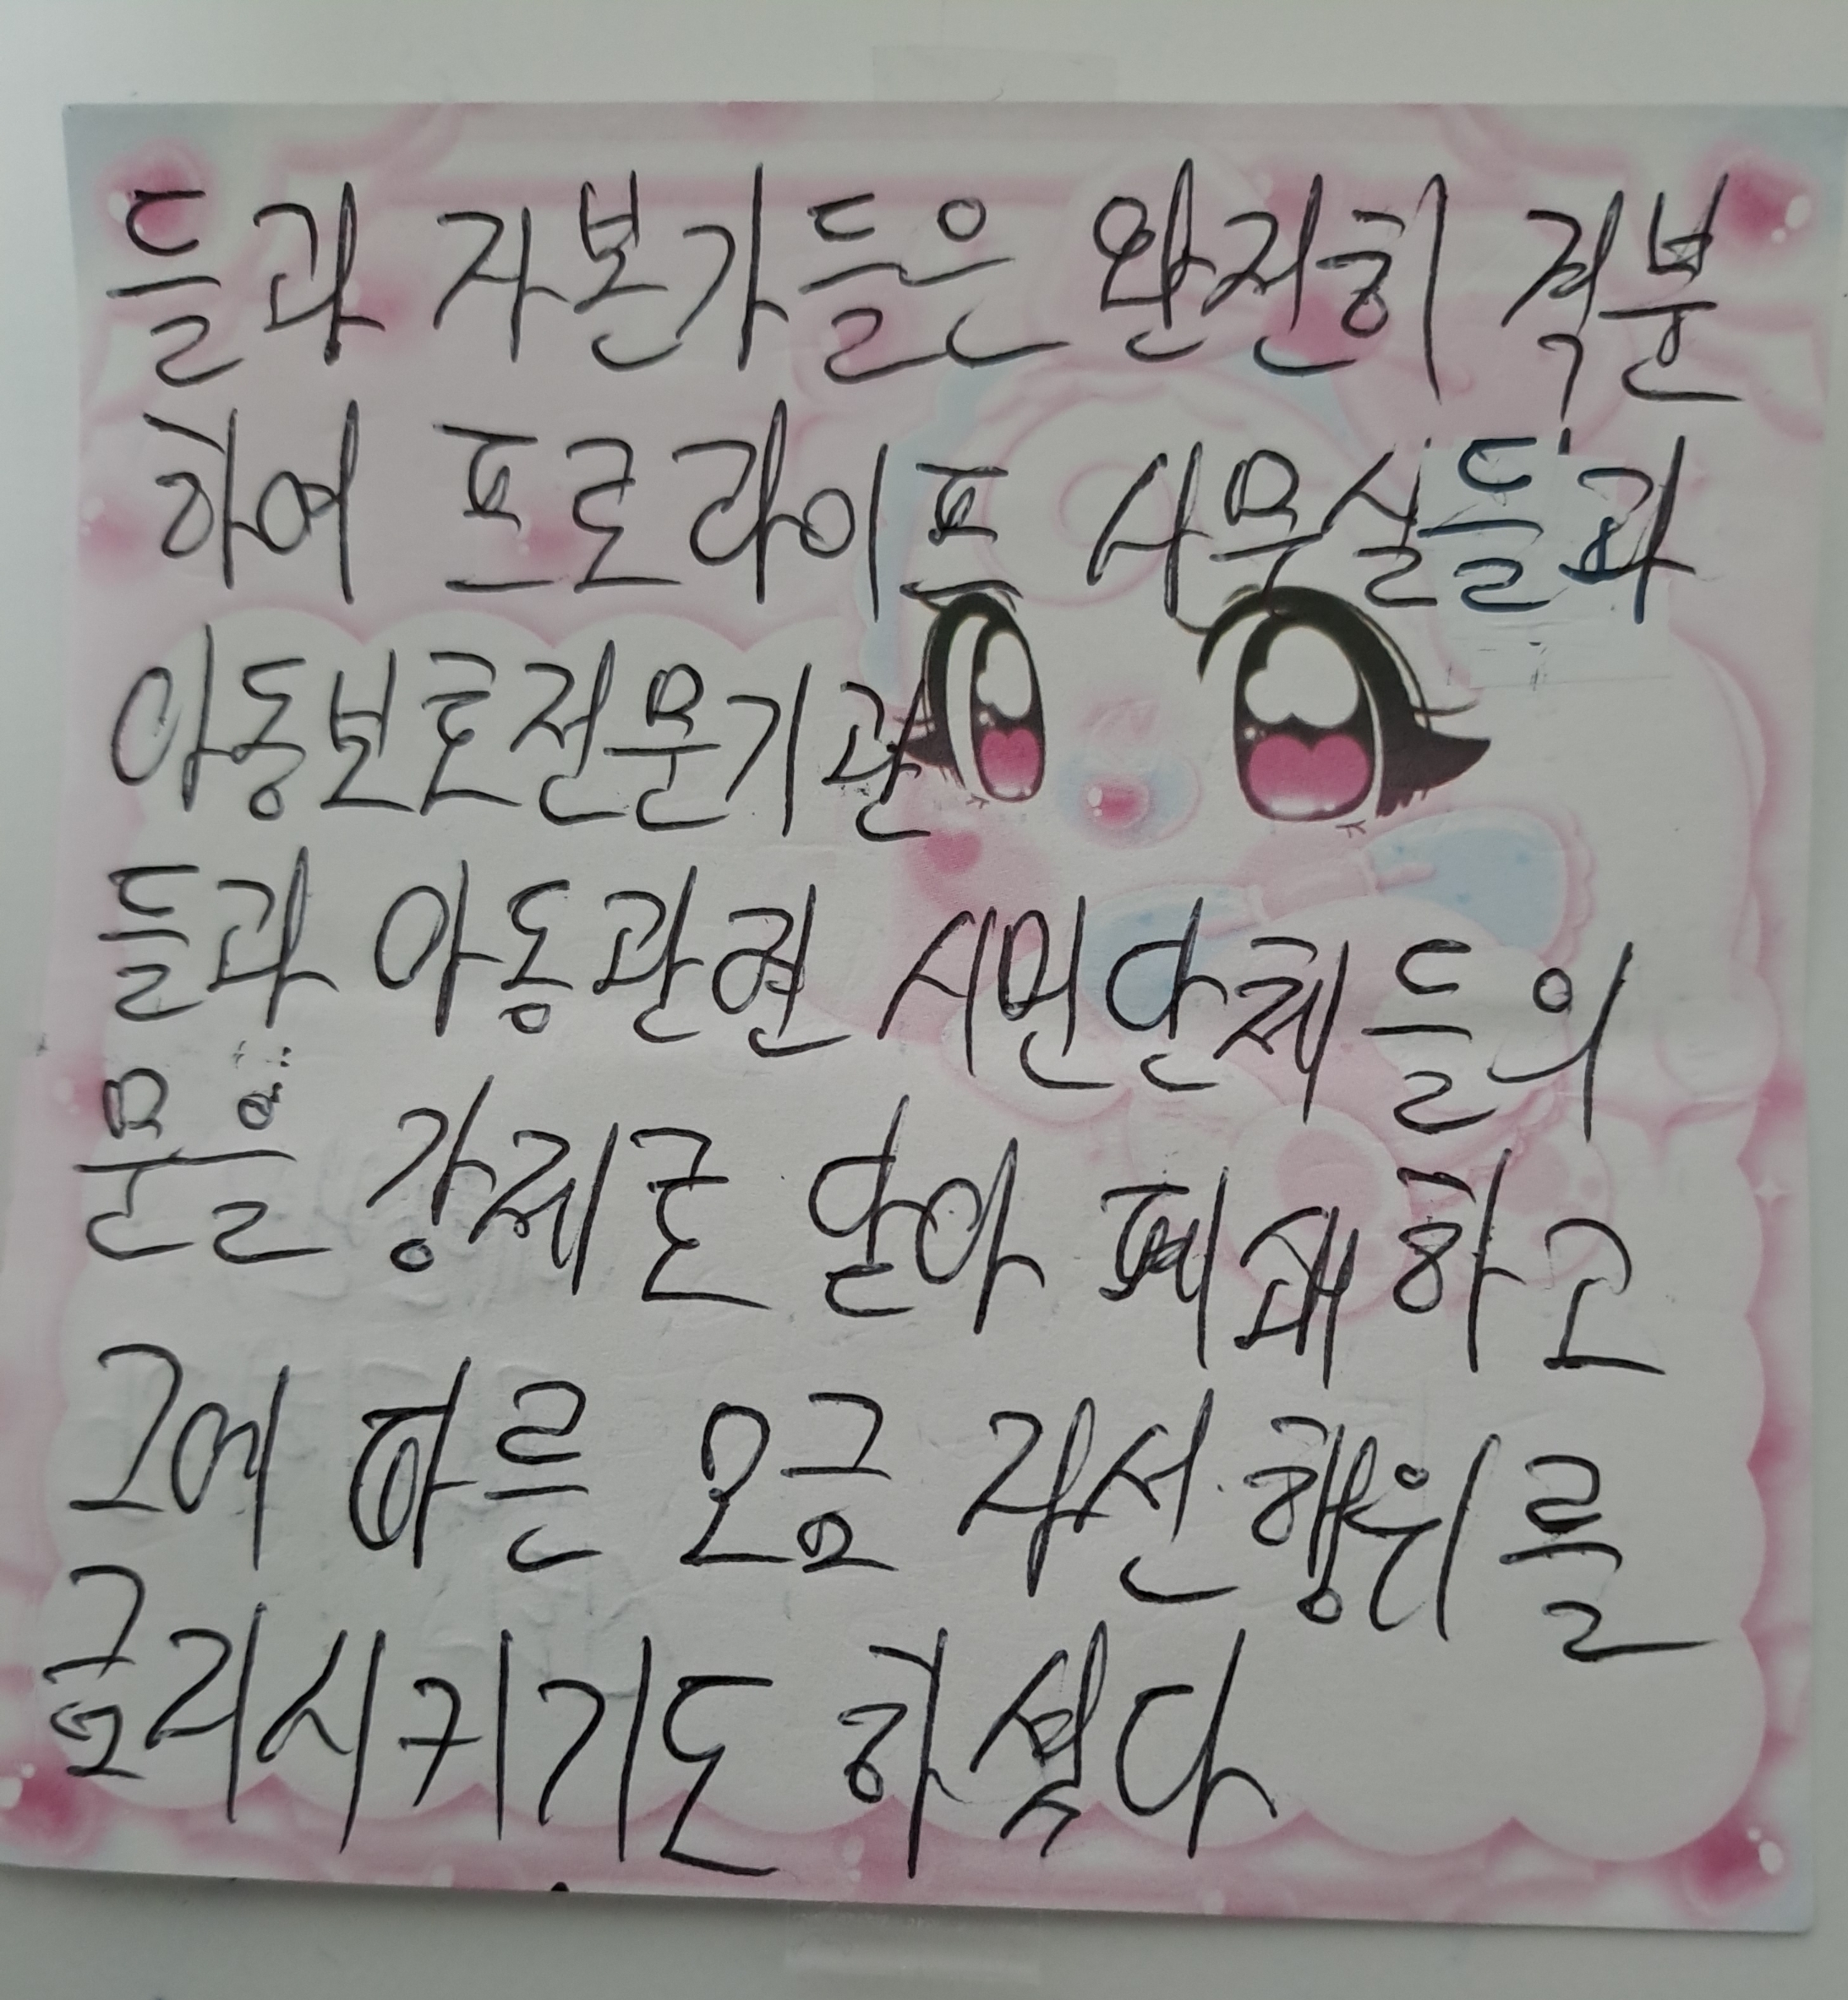 들과 자본가들은 완전히 격분
하여 프로라이프 사무실들과
아동보호전문기관
들과 아동관련 시민단체들의
문을 강제로 닫아 폐쇄하고
그에 따른 모금 자선행위를
금리시키기도 하였다